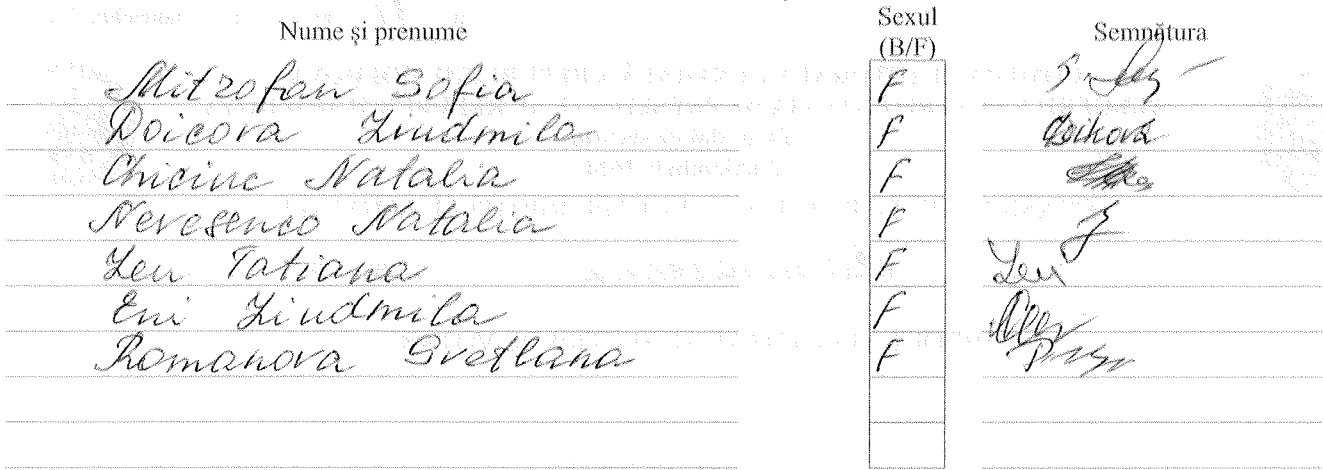 Nume și prenume Sexul (B/F) Semnătura
Mitrofan Sofia F
Doicova Liudmila F Doikova
Chiciuc Natalia F
Nevesenco Natalia F
Leu Tatiana F Leu
Eni Liudmila F
Romanova Svetlana F